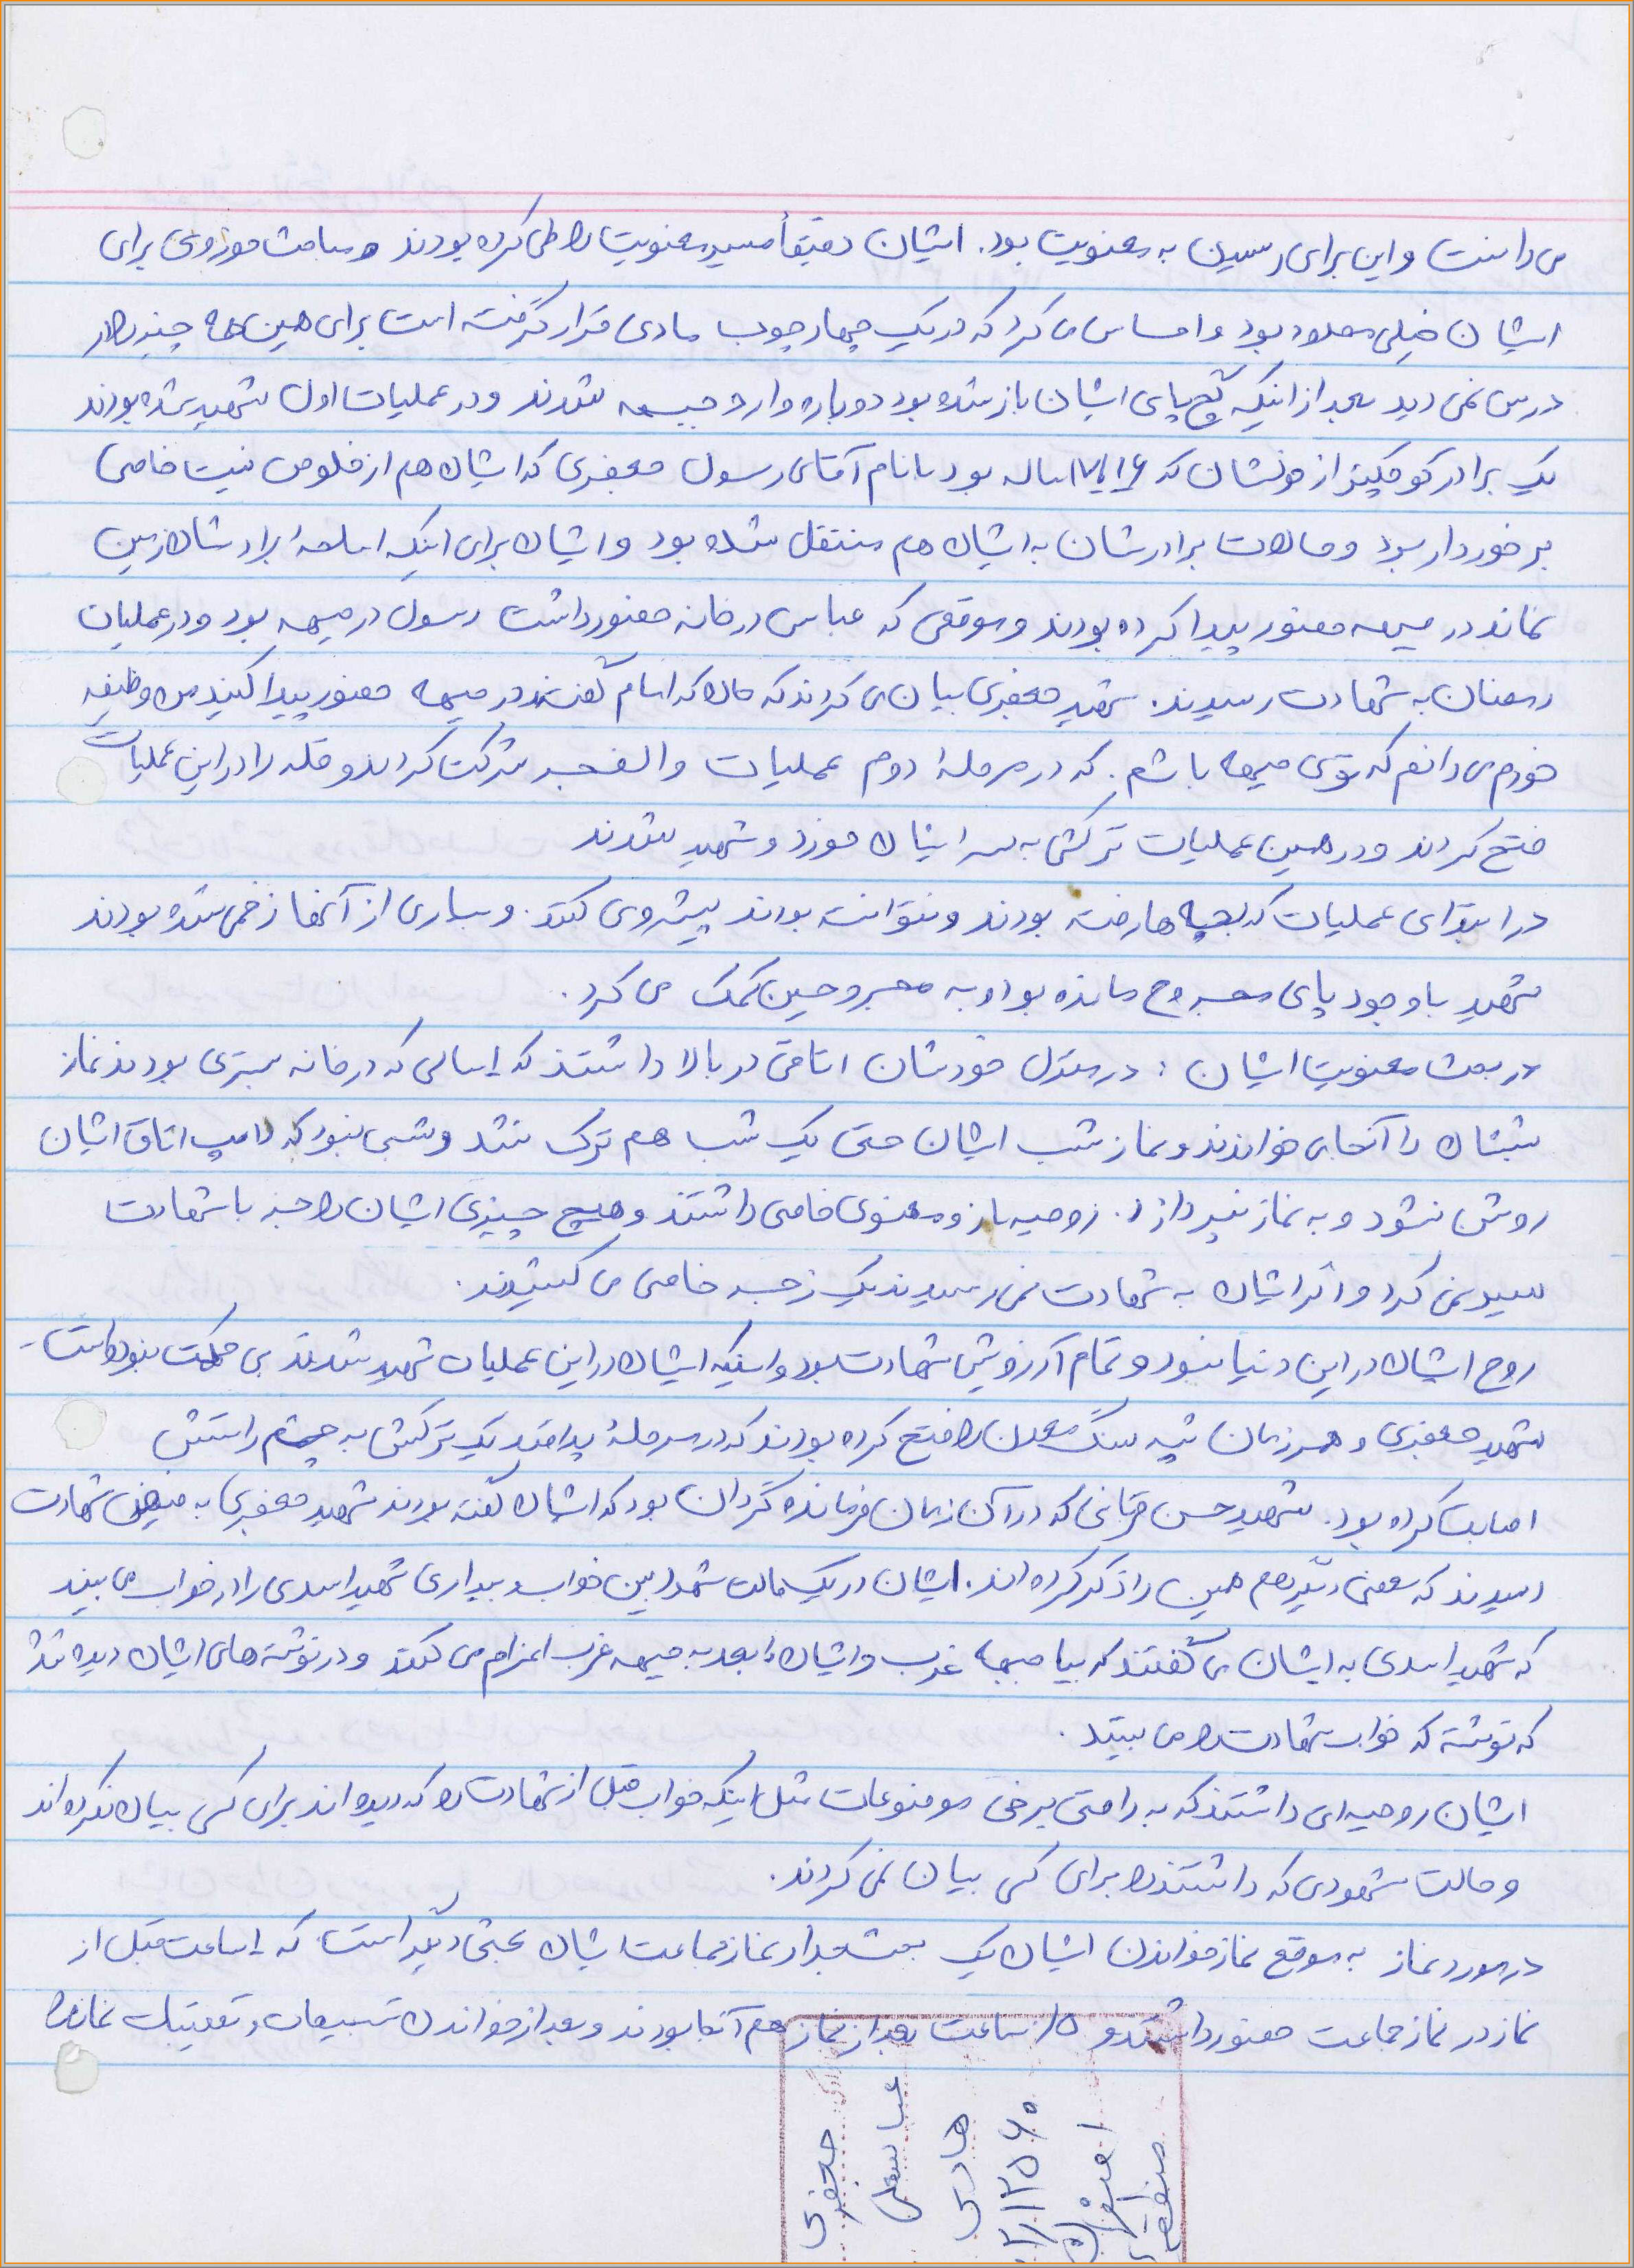 می دانست و این برای رسیدن به معنویت بود. ایشان دقیقاً مسیر معنویت را طی کرده بودند و مباحث موزوی برای
ایشان خیلی محدود بود و احساس می کرد که در یک چهارچوب مادی قرار گرفته است برای همین ها چیز را از
درس نمی دید بعد از اینکه گچ پای ایشان باز شده بود دوباره وارد جبهه شدند و در عملیات اول شهید شده بودند
یک برادر کوچکتر از خودشان که ۱۶ یا ۱۷ ساله بود با نام آقای رسول جعفری که ایشان هم از خلوص نیت خاصی
برخوردار بود و حالات برادرشان به ایشان هم منتقل شده بود و ایشان برای اینکه اسلحهٔ برادرشان زمین
نماند در جبهه حضور پیدا کرده بودند و موقعی که عباس در خانه حضور داشت رسول در جبهه بود و در عملیات
رمضان به شهادت رسیدند. شهید جعفری بیان می کردند که حالا که امام گفتند در جبهه حضور پیدا کنید من وظیفه
خودم می دانم که توی جبهه باشم. که در مرحلهٔ دوم عملیات والفجر شرکت کردند و قله را در این عملیات
فتح کردند و در همین عملیات ترکش به سر ایشان خورد و شهید شدند
در ابتدای عملیات که بچه ها رفته بودند و نتوانسته بودند پیشروی کنند. و بسیاری از آنها زخمی شده بودند
شهید با وجود پای مجروح مانده بود و به مجروحین کمک می کرد.
در بحث معنویت ایشان : در منزل خودشان اتاقی در بالا داشتند که ۱سالی که در خانه بستری بودند نماز
شبشان را آنجا می خواندند و نماز شب ایشان حتی یک شب هم ترک نشد و شبی نبود که لامپ اتاق ایشان
روشن نشود و به نماز نپردازد. روحیه باز و معنوی خاصی داشتند و هیچ چیزی ایشان را جز با شهادت
سیر نمی کرد و اگر ایشان به شهادت نمی رسیدند یک زجر خاصی می کشیدند.
روح ایشان در این دنیا نبود و تمام آرزویش شهادت بود و اینکه ایشان در این عملیات شهید شدند بی حکمت نبوده است.
شهید جعفری و همرزمان تپه سنگ معدن را فتح کرده بودند که در مرحلهٔ پدافند یک ترکش به چشم راستش
اصابت کرده بود. شهید حسن قربانی که در آن زمان فرمانده گردان بود که ایشان گفته بودند شهید جعفری به فیض شهادت
رسیدند که بعضی دیگر هم همین را ذکر کرده اند. ایشان در یک حالت شهود بین خواب و بیداری شهید اسدی را در خواب می بیند
که شهید اسدی به ایشان می گفتند که بیا جبهه غرب و ایشان بعد به جبهه غرب اعزام می کنند و در نوشته های ایشان دیده شد
که نوشته که خواب شهادت را می بیند.
ایشان روحیه ای داشتند که به راحتی برخی موضوعات مثل اینکه خواب قبل از شهادت را که دیده اند برای کسی بیان نکرده اند
و حالت شهودی که داشتند را برای کسی بیان نمی کردند.
در مورد نماز به موقع نماز خواندن ایشان یک بحث جدا و نماز جماعت ایشان بحثی دیگر است که ۱ساعت قبل از
نماز در نماز جماعت حضور داشتند و ۱/۵ ساعت بعد از نماز هم آنجا بودند و بعد از خواندن تسبیحات و تعقیبات نماز را
جعفری
عباسعلی
هادی